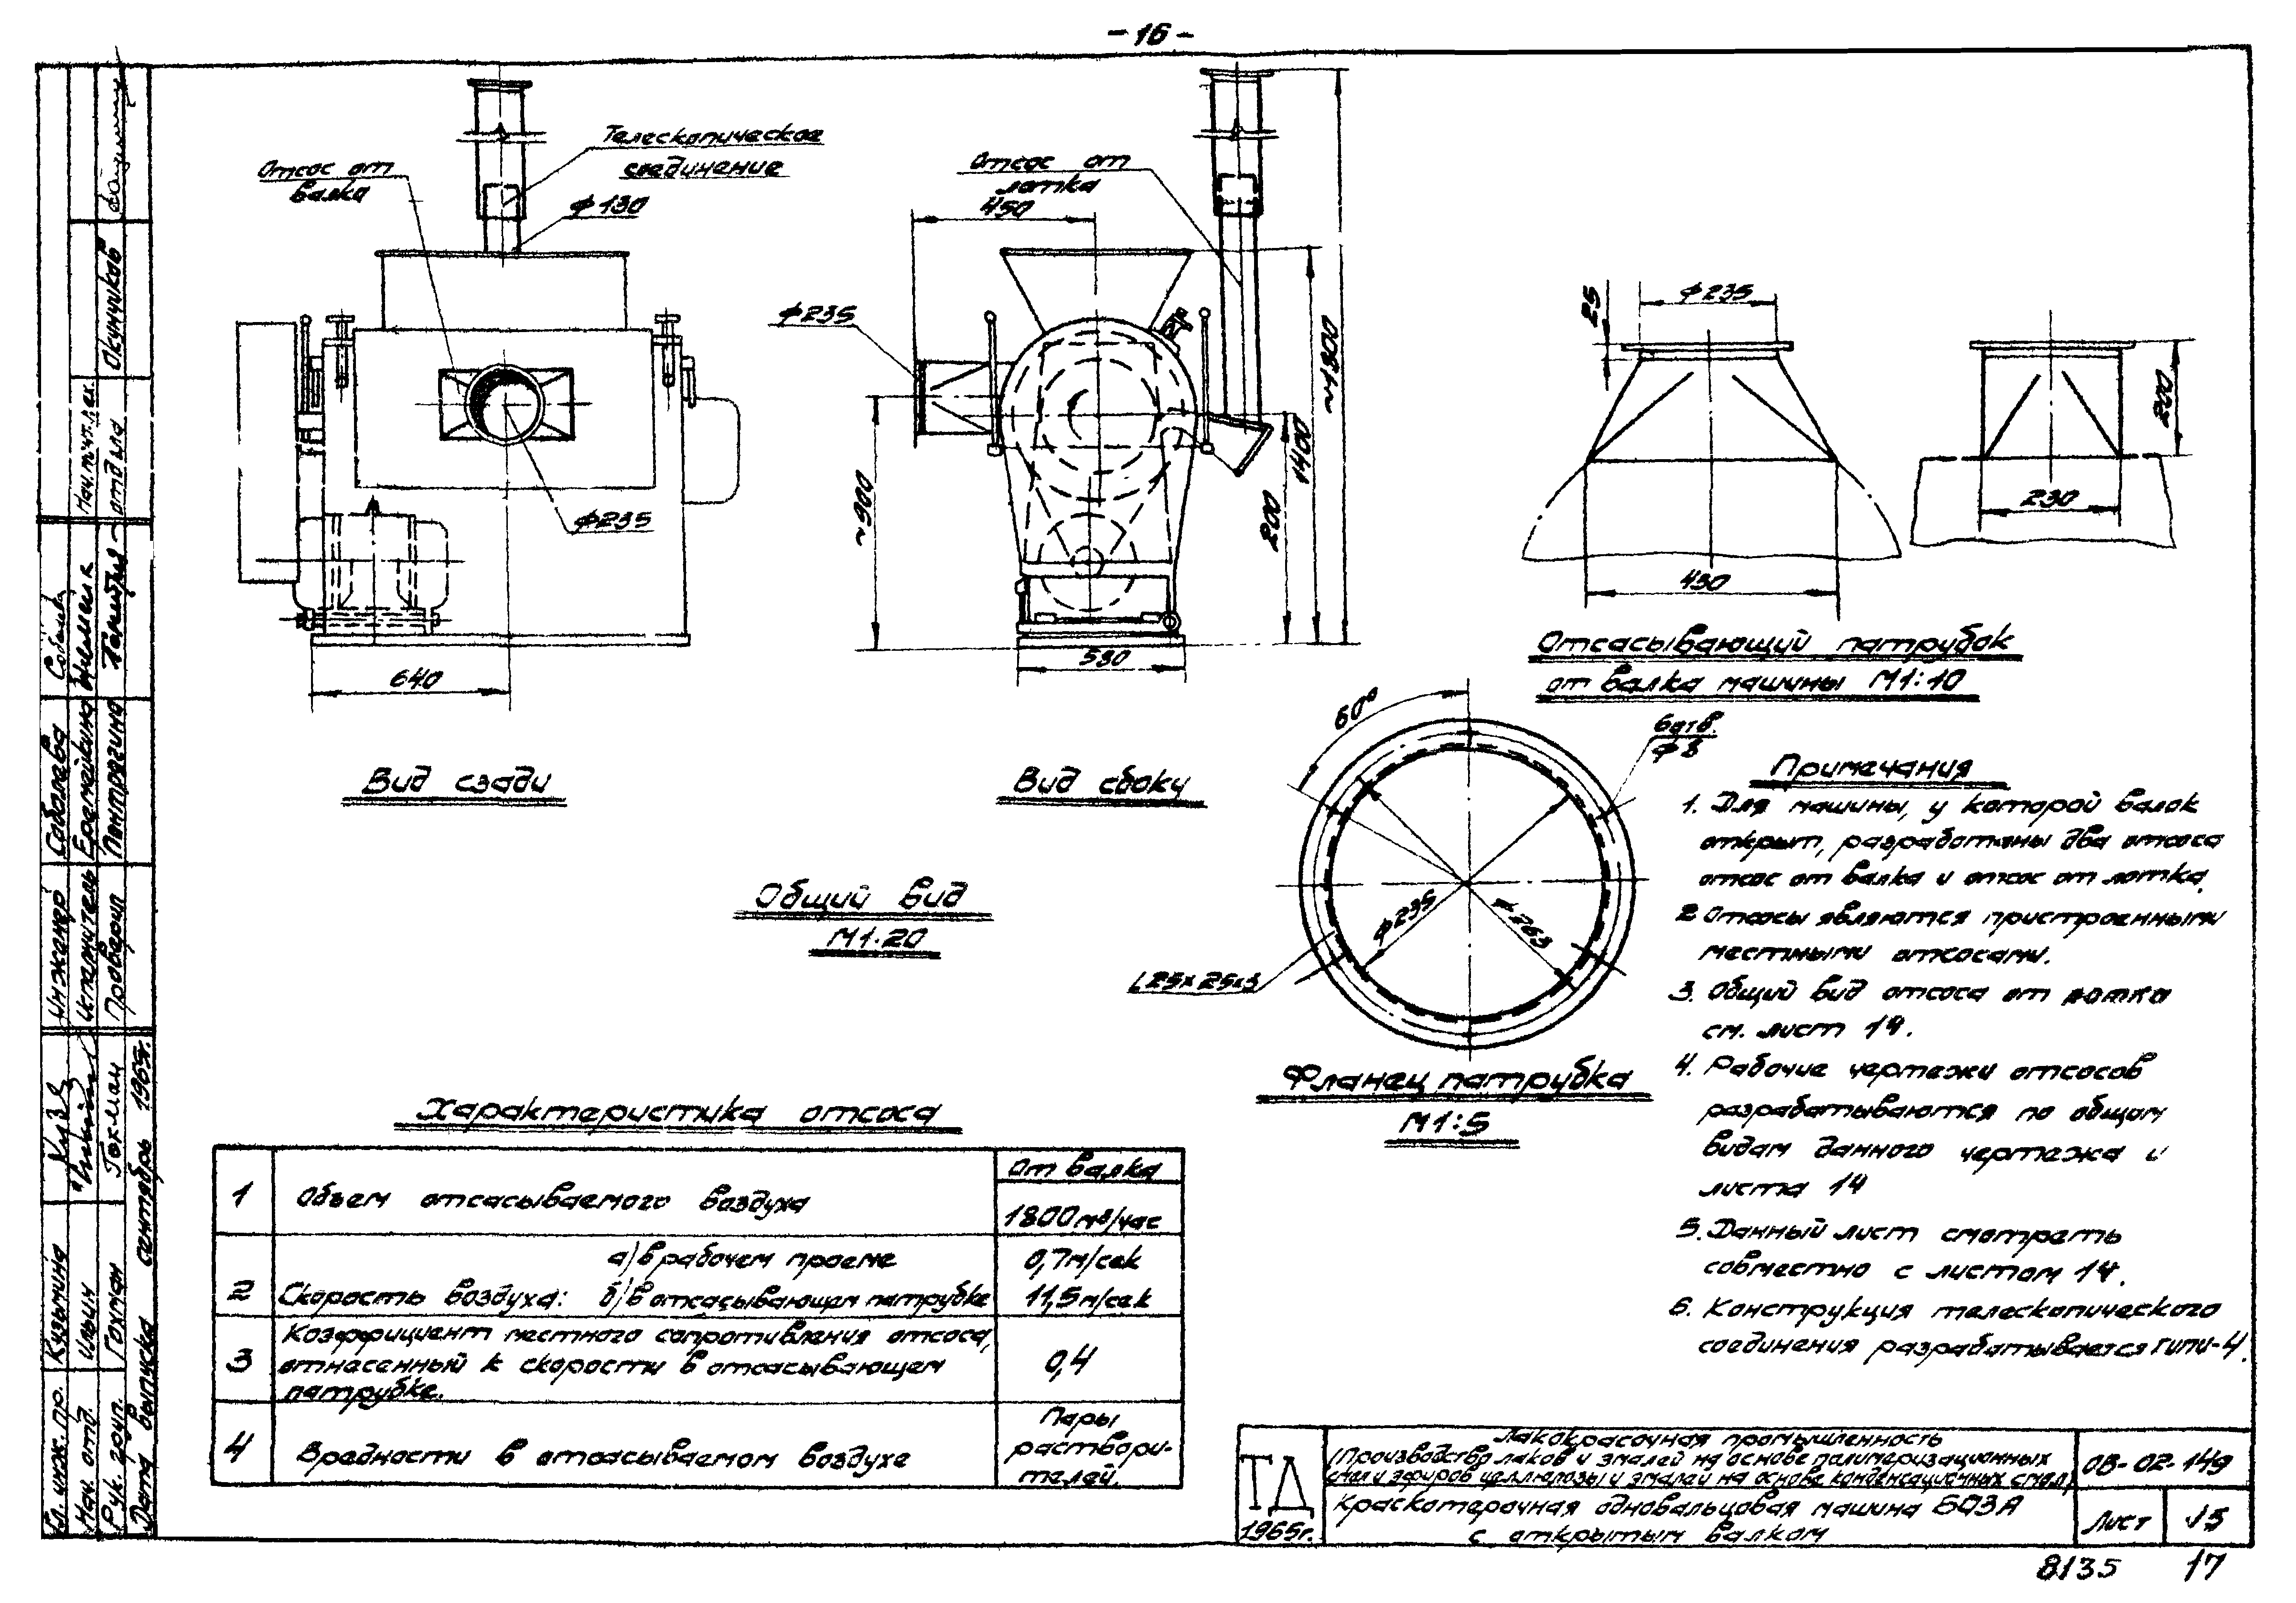 - 16 -
Отсос от
валка
Телескопическое
соединение
ф130
ф235
640
Вид сзади
Отсос от
лотка
450
ф235
~900
530
200
1400
~1800
Вид сбоку
Общий вид
М1:20
25
ф235
430
200
230
Отсасывающий патрубок
от валка машины М1:10
60°
6 отв.
ф8
ф235
ф263
L25×25×3
Фланец патрубка
М1:5
Примечания
1. Для машины, у которой валок
открыт, разработаны два отсоса
отсос от валка и отсос от лотка.
2 Отсосы являются пристроенными
местными отсосами.
3. Общий вид отсоса от лотка
см. лист 14.
4. Рабочие чертежи отсосов
разрабатываются по общим
видам данного чертежа и
листа 14
5. Данный лист смотреть
совместно с листом 14.
6. Конструкция телескопического
соединения разрабатывается ГИПИ-4.
Характеристика отсоса
От валка
1 Объем отсасываемого воздуха 1800 м³/час
а) в рабочем проеме 0,7 м/сек
2 Скорость воздуха: б) в отсасывающем патрубке 11,5 м/сек
Коэффициент местного сопротивления отсоса,
3 отнесенный к скорости в отсасывающем 0,4
патрубке.
4 Вредности в отсасываемом воздухе Пары
раствори-
телей.
ТД
1965г.
Лакокрасочная промышленность
(Производство лаков и эмалей на основе полимеризационных
смол и эфиров целлюлозы и эмалей на основе конденсационных смол)
Краскотерочная одновальцовая машина БОЗА
с открытым валком
ОВ-02-149
Лист 15
8135 17
Гл. инж. пр. Кузьмина
Нач. отд. Ильин
Рук. групп. Гохман
Дата выпуска сентябрь 1965г.
Инженер Соболева
Исполнитель Еремейкина
Проверил
отдела Окунчиков